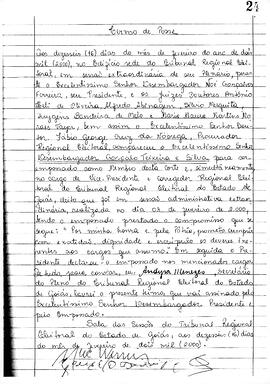 24
Termo de Posse
Aos dezesseis (16) dias do mês de janeiro do ano de dois
mil (2000), no Edifício sede do Tribunal Regional Elei-
toral, em sessão extraordinária de seu Plenário, presen-
te o Excelentíssimo Senhor Desembargador Noé Gonçalves
Ferreira, seu Presidente e os Juízes Doutores Antônio
de Oliveira, Alfredo Abinagem, Mário
Bandeira de Melo e Maria
bem assim o Excelentíssimo Senhor Dou-
tor, Fábio George Cruz da Nóbrega, Procurador
Regional Eleitoral, compareceu o Excelentíssimo Senhor
Desembargador Gonçalo Teixeira e Silva, para ser
empossado como Membro desta Corte e, simultaneamente
no cargo de Vice-Presidente e Corregedor Regional Eleitoral
do Tribunal Regional Eleitoral do Estado de
Goiás, eleito que foi em sessão administrativa extraor-
dinária, realizada no dia de janeiro de 2000,
tendo o empossado prestado o compromisso que se
segue: "Por minha honra e pela Pátria, prometo cumprir
com exatidão, dignidade e escrúpulo os deveres ine-
rentes aos cargos que assumo". Em seguida o Presi-
dente declarou o empossado nos mencionados cargos
do que, para constar, eu, Secretária
do Pleno do Tribunal Regional Eleitoral do Estado
de Goiás, lavrei o presente termo que vai assinado pelo
Excelentíssimo Senhor Desembargador Presidente e
pelo Empossado.
Sala das Sessões do Tribunal Regional
Eleitoral do Estado de Goiás, aos dezesseis (16) dias
do mês de janeiro de dois mil (2000).